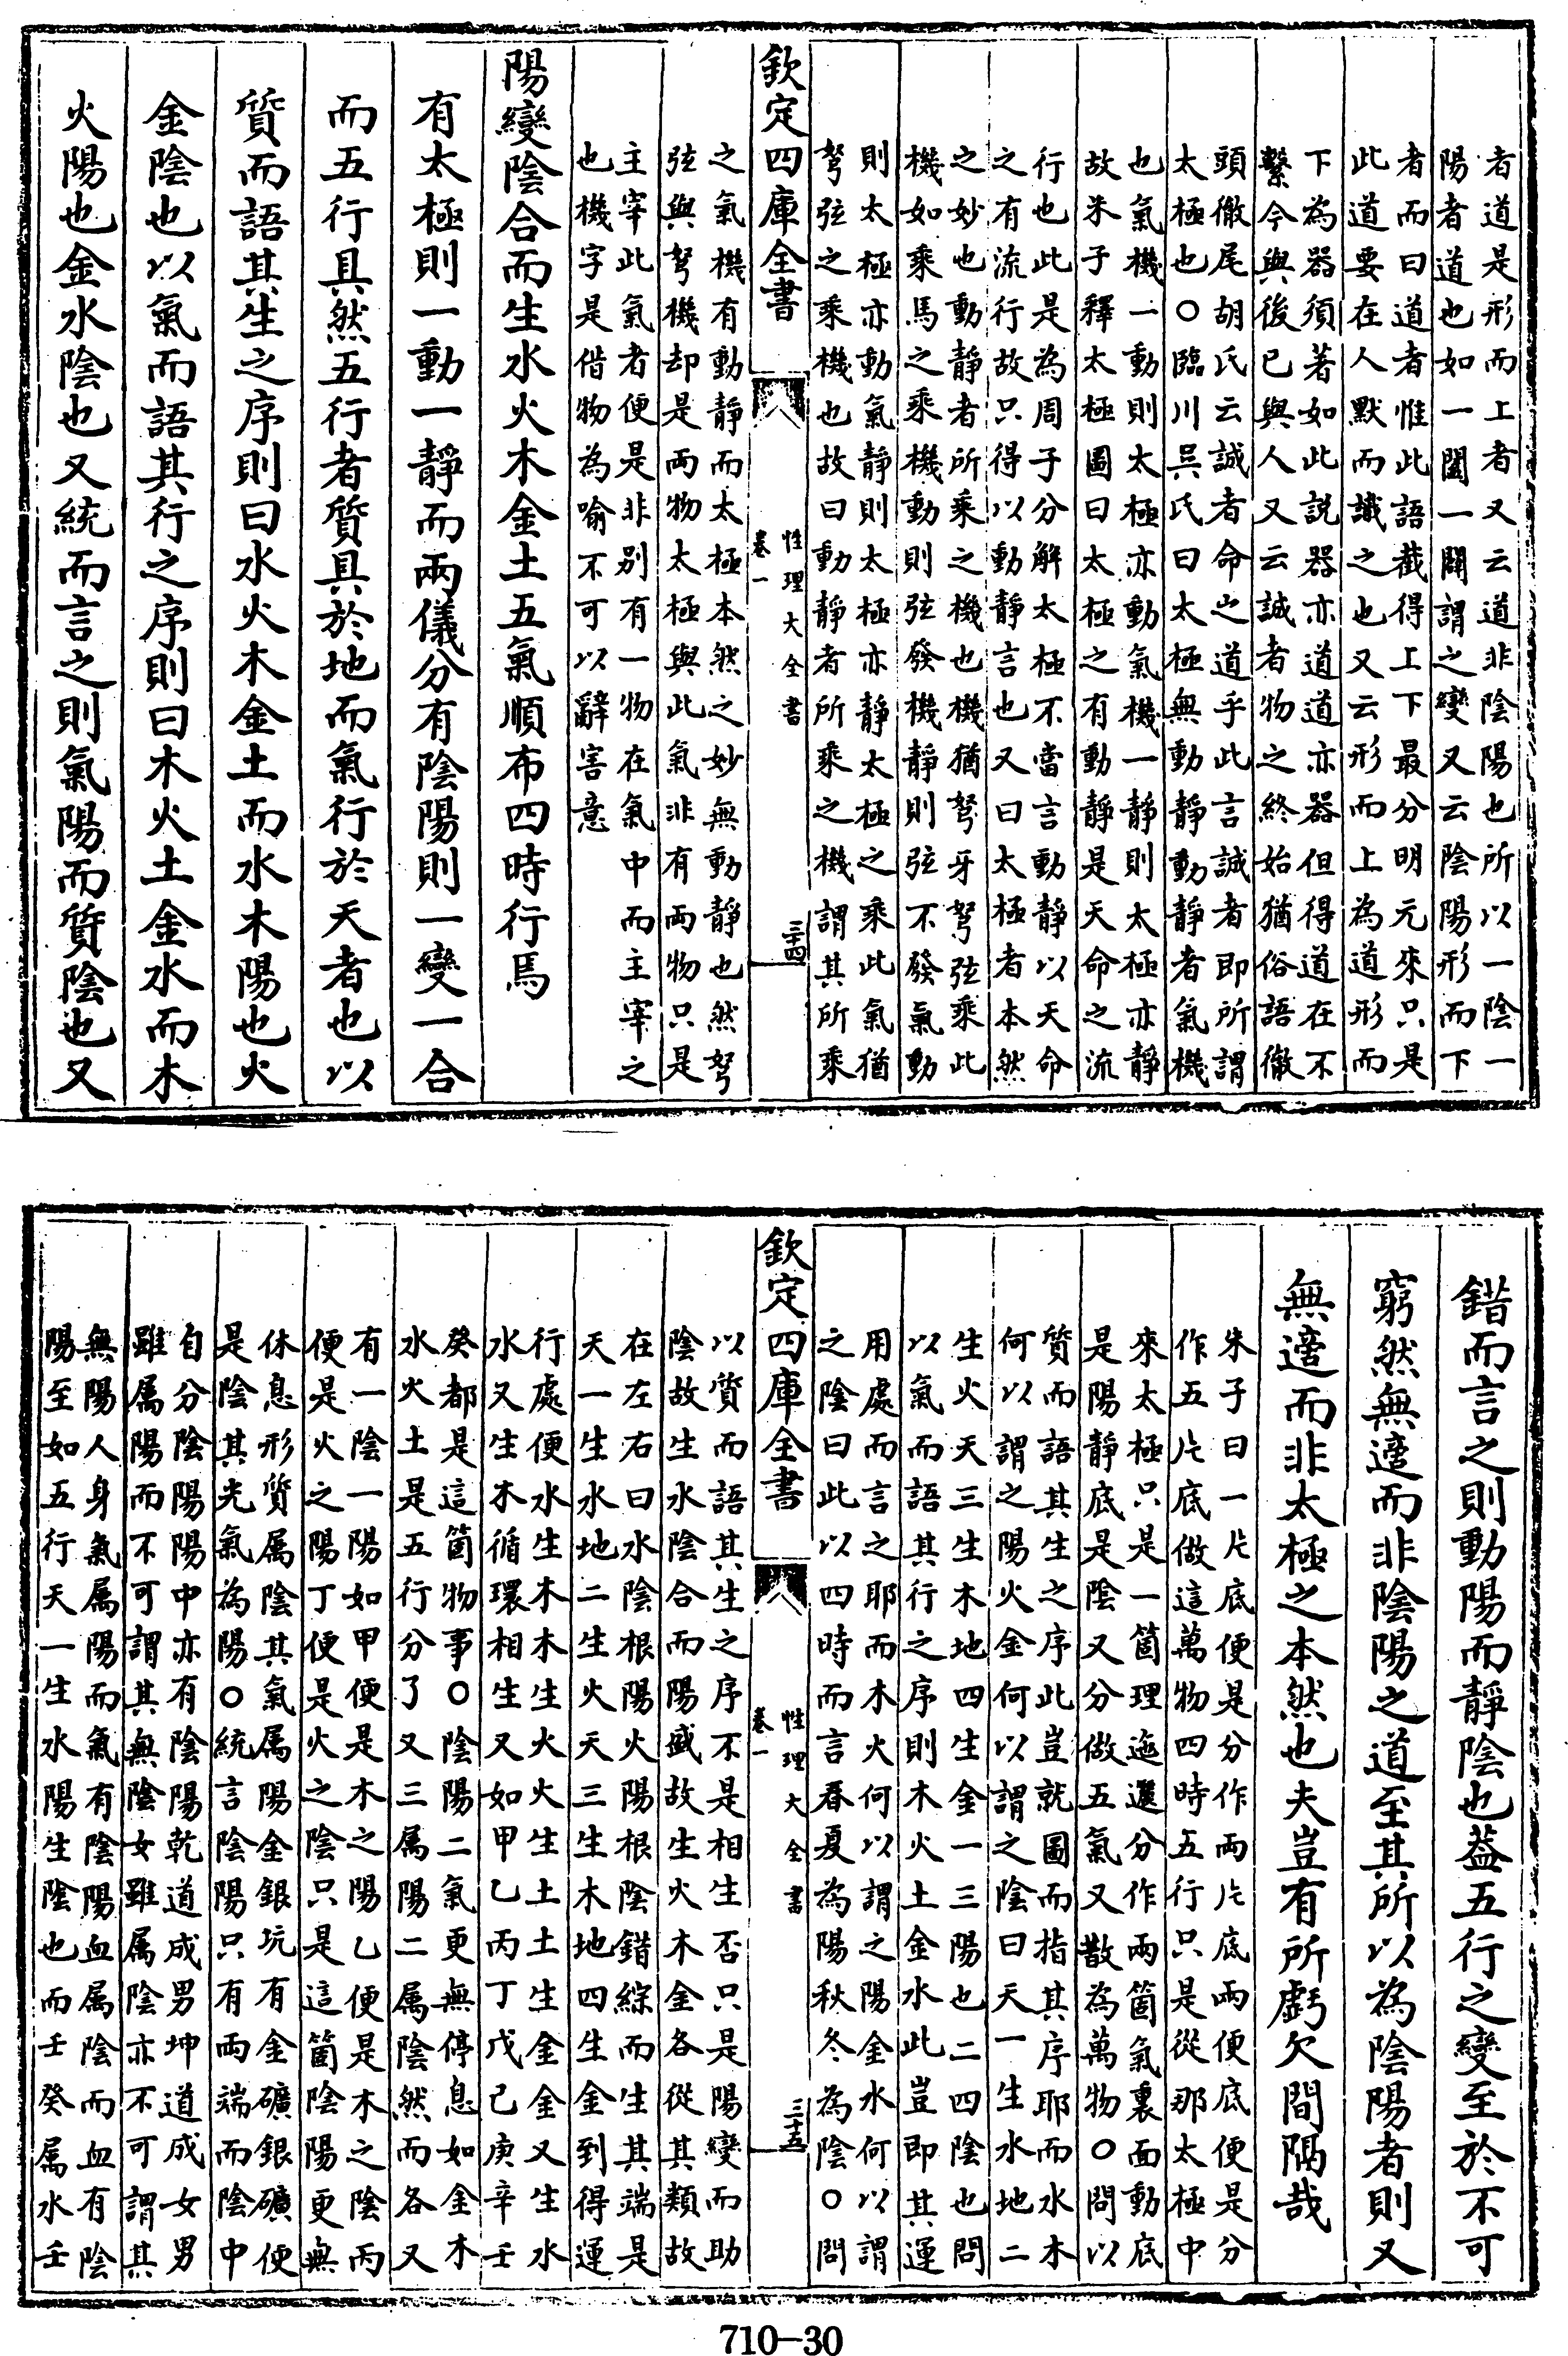 者道是形而上者又云道非陰陽也所以一陰一
陽者道也如一闔一闢謂之變又云陰陽形而下
者而曰道者惟此語截得上下最分明元來只是
此道要在人默而識之也又云形而上為道形而
下為器須著如此説器亦道道亦器但得道在不
繫今與後已與人又云誠者物之終始猶俗語徹
頭徹尾胡氏云誠者命之道乎此言誠者即所謂
太極也○臨川吳氏曰太極無動靜動靜者氣機
也氣機一動則太極亦動氣機一靜則太極亦靜
故朱子釋太極圖曰太極之有動靜是天命之流
行也此是為周子分解太極不當言動靜以天命
之有流行故只得以動靜言也又曰太極者本然
之妙也動靜者所乘之機也機猶弩牙弩弦乘此
機如乘馬之乘機動則弦發機靜則弦不發氣動
則太極亦動氣靜則太極亦靜太極之乘此氣猶
弩弦之乘機也故曰動靜者所乘之機謂其所乘
欽定四庫全書
性理大全書
卷一
三十四
之氣機有動靜而太極本然之妙無動靜也然弩
弦與弩機却是兩物太極與此氣非有兩物只是
主宰此氣者便是非别有一物在氣中而主宰之
也機字是借物為喻不可以辭害意
陽變陰合而生水火木金土五氣順布四時行焉
有太極則一動一靜而兩儀分有陰陽則一變一合
而五行具然五行者質具於地而氣行於天者也以
質而語其生之序則曰水火木金土而水木陽也火
金陰也以氣而語其行之序則曰木火土金水而木
火陽也金水陰也又統而言之則氣陽而質陰也又
錯而言之則動陽而靜陰也葢五行之變至於不可
窮然無適而非陰陽之道至其所以為陰陽者則又
無適而非太極之本然也夫豈有所虧欠間隔哉
朱子曰一片底便是分作兩片底兩便底便是分
作五片底做這萬物四時五行只是從那太極中
來太極只是一箇理迤邐分作兩箇氣裏面動底
是陽靜底是陰又分做五氣又散為萬物○問以
質而語其生之序此豈就圖而指其序耶而水木
何以謂之陽火金何以謂之陰曰天一生水地二
生火天三生木地四生金一三陽也二四陰也問
以氣而語其行之序則木火土金水此豈即其運
用處而言之耶而木火何以謂之陽金水何以謂
之陰曰此以四時而言春夏為陽秋冬為陰○問
欽定四庫全書
性理大全書
卷一
三十五
以質而語其生之序不是相生否只是陽變而助
陰故生水陰合而陽盛故生火木金各從其類故
在左右曰水陰根陽火陽根陰錯綜而生其端是
天一生水地二生火天三生木地四生金到得運
行處便水生木木生火火生土土生金金又生水
水又生木循環相生又如甲乙丙丁戊己庚辛壬
癸都是這箇物事○陰陽二氣更無停息如金木
水火土是五行分了又三属陽二属陰然而各又
有一陰一陽如甲便是木之陽乙便是木之陰丙
便是火之陽丁便是火之陰只是這箇陰陽更無
休息形質属陰其氣属陽金銀坑有金礦銀礦便
是陰其光氣為陽○統言陰陽只有兩端而陰中
自分陰陽陽中亦有陰陽乾道成男坤道成女男
雖属陽而不可謂其無陰女雖属陰亦不可謂其
無陽人身氣属陽而氣有陰陽血属陰而血有陰
陽至如五行天一生水陽生陰也而壬癸属水壬
710—30